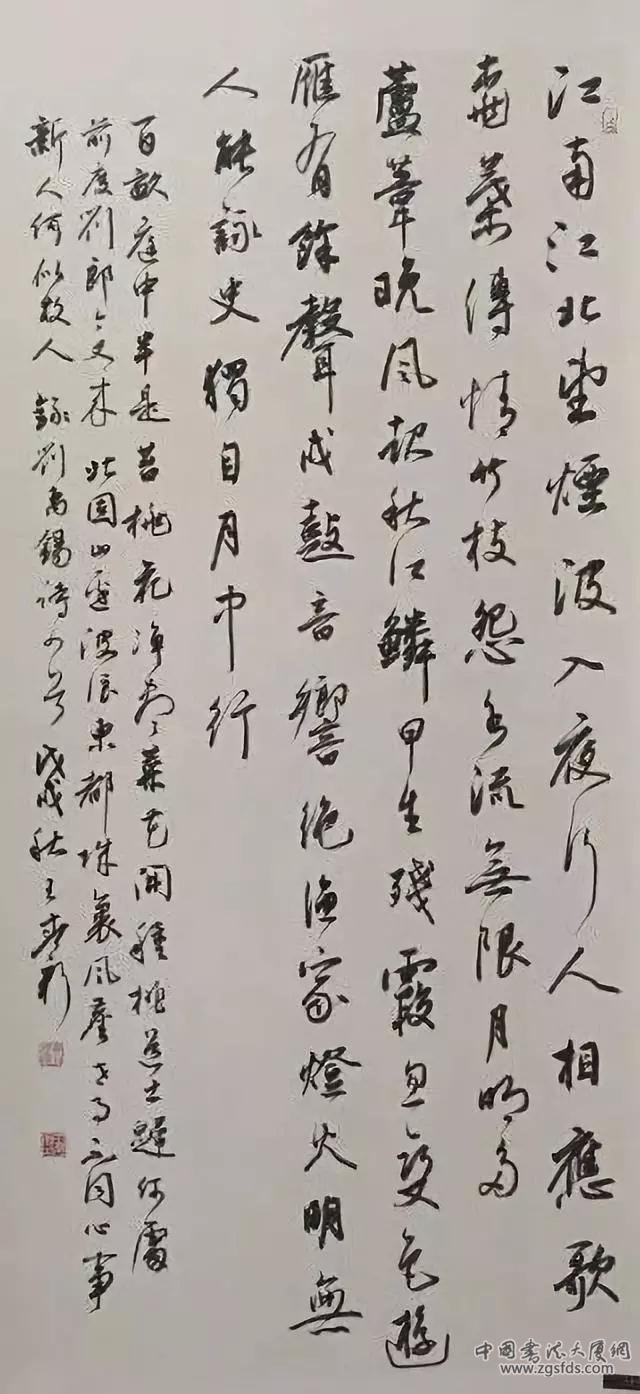 江南江北望煙波入夜行人相應歌
桃葉傳情竹枝怨水流無限月明多
蘆葦晚風起秋江鱗甲生殘霞忽變色遊
雁有餘聲戍鼓音響絕漁家燈火明無
人能詠史獨自月中行
百畝庭中半是苔桃花淨盡菜花開種桃道士歸何處
前度劉郎今又来北固山邊波浪東都城裏風塵世事不同心事
新人何似故人 錄劉禹錫詩四首 戊戌秋王
中國書法大厦網
www.zgsfds.com